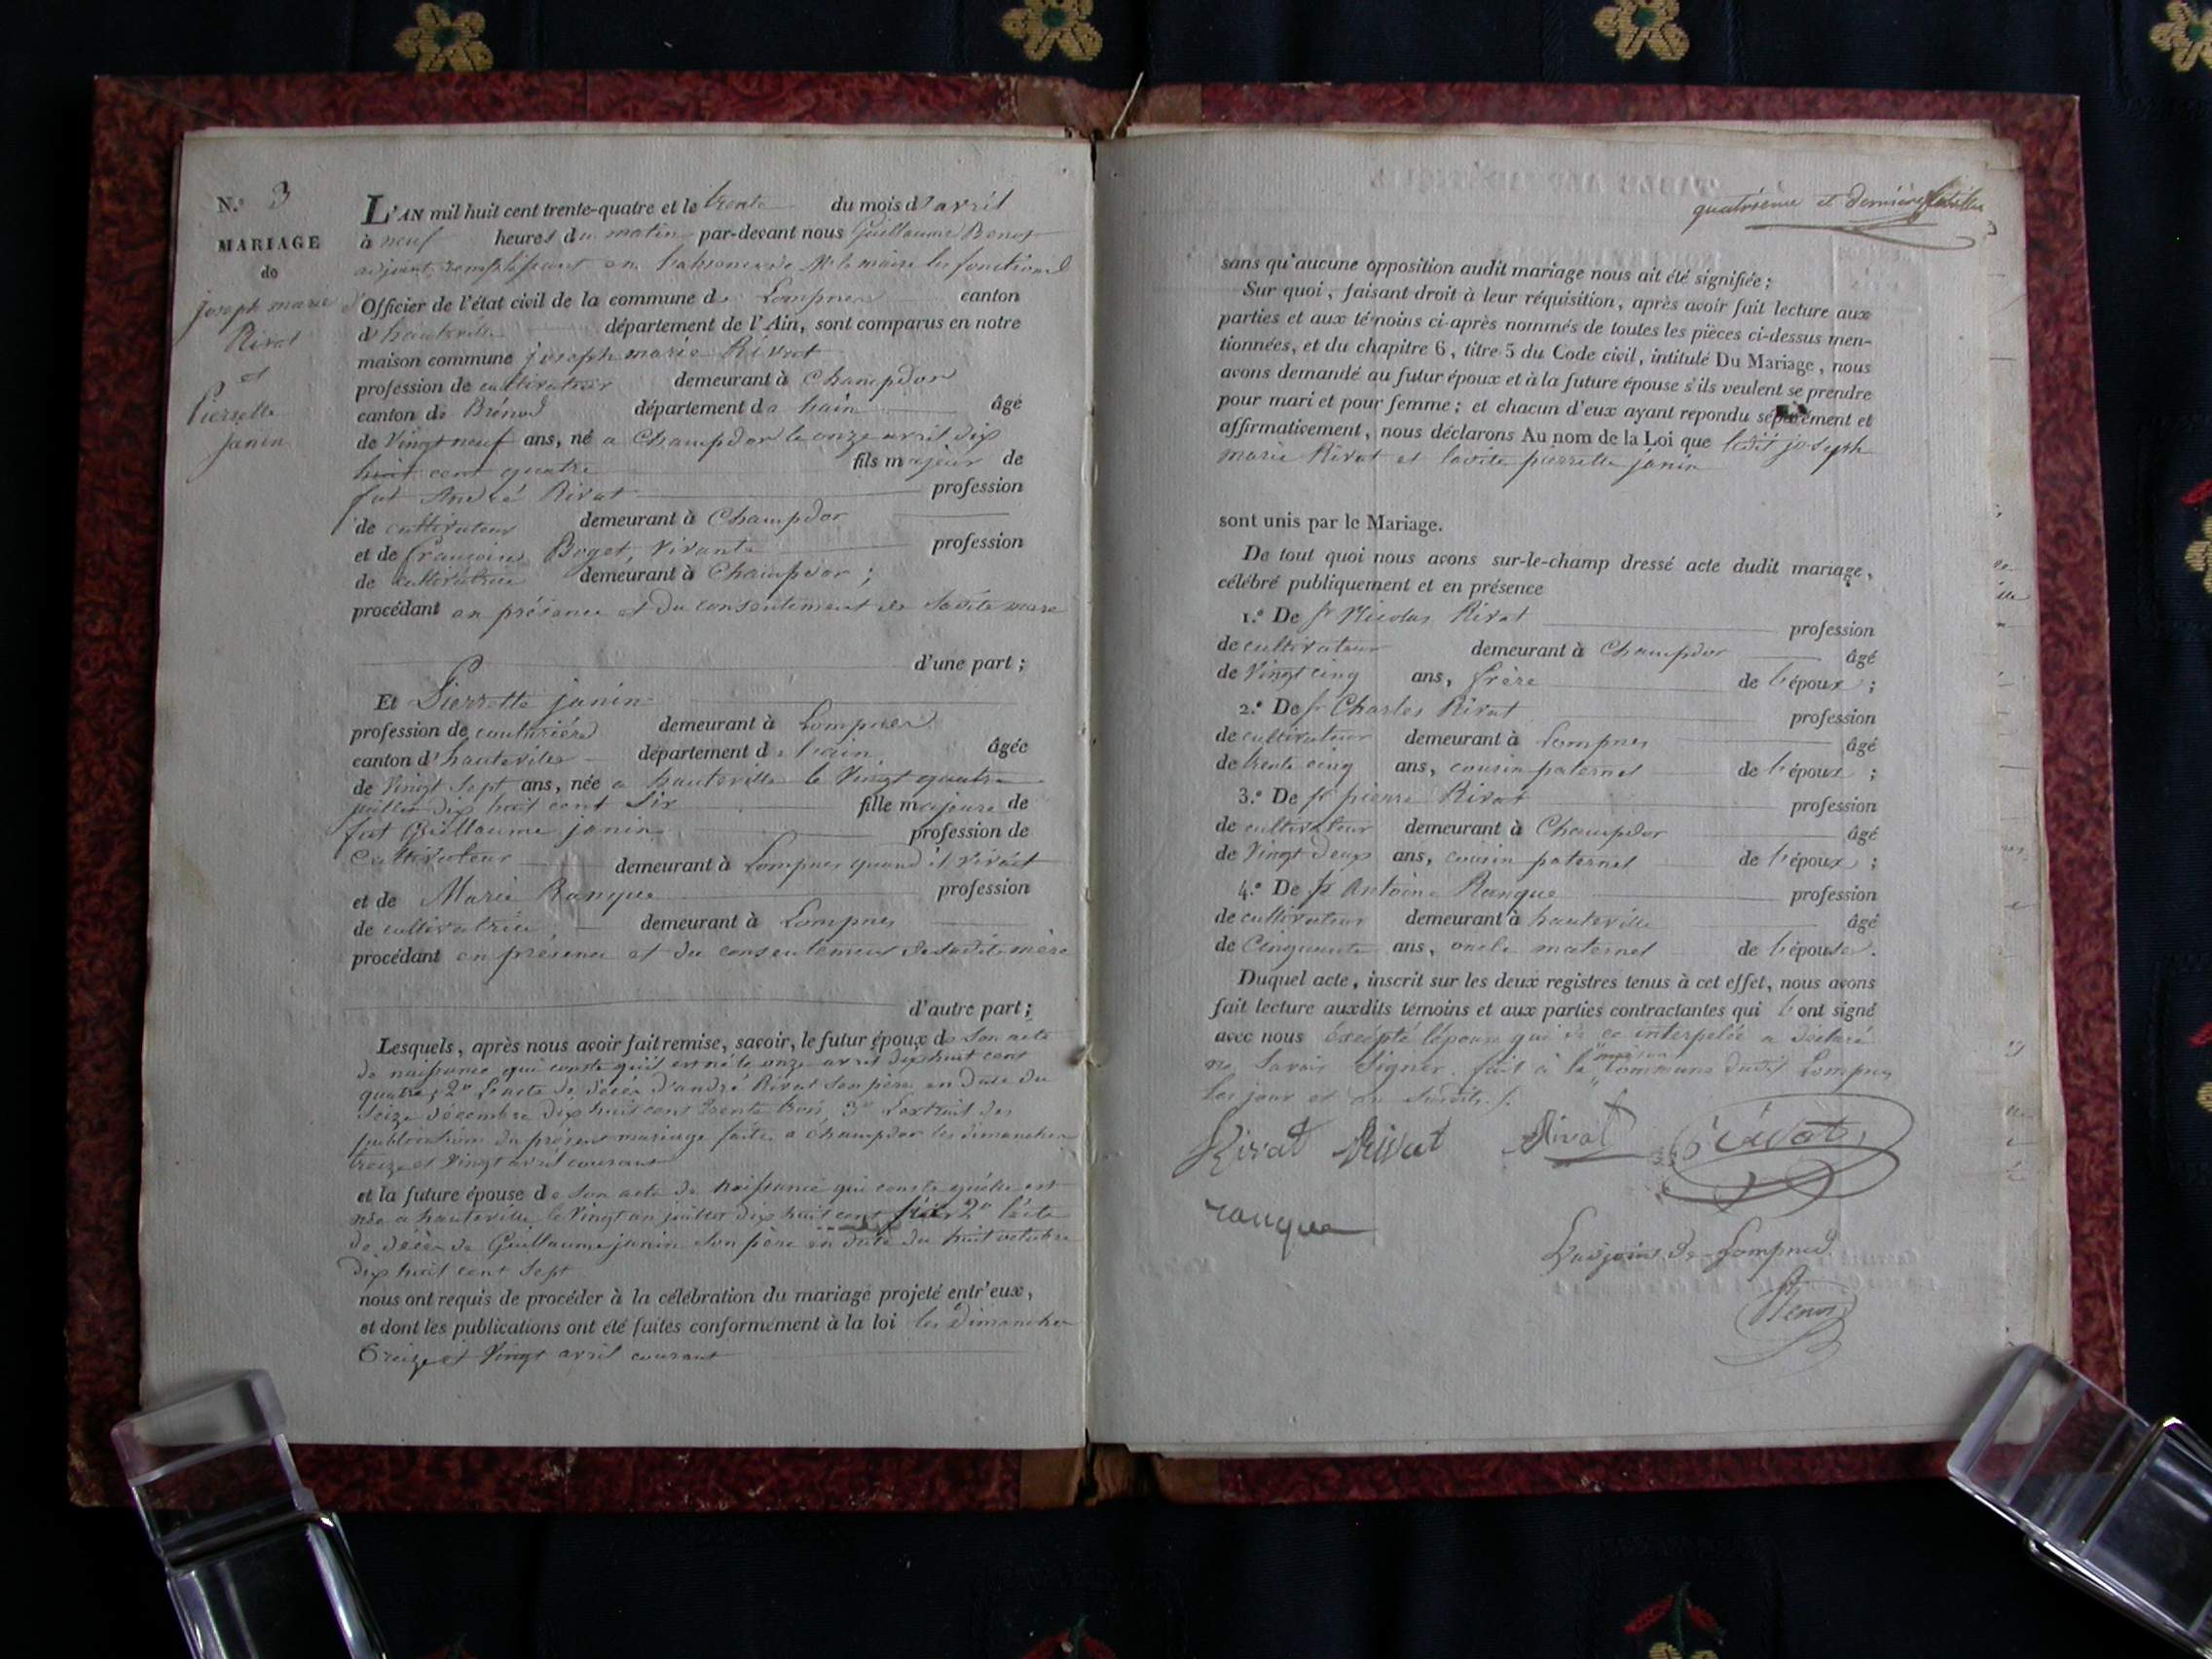 N.º 3
MARIAGE
de
joseph marie
Rivat
et
Pierrette
janin
L'AN mil huit cent trente-quatre et le trente du mois d'avril
à neuf heures du matin par-devant nous Guillaume Benoit
adjoint remplissant en l'absence de Mr le maire les fonctions
d'Officier de l'état civil de la commune de Lompnes canton
d'hauteville département de l'Ain, sont comparus en notre
maison commune joseph marie Rivat
profession de cultivateur demeurant à Champdor
canton de Brénod département de lain âgé
de Vingt neuf ans, né a Champdor le onze avril dix
huit cent quatre fils majeur de
fut André Rivat profession
de cultivateur demeurant à Champdor
et de françoise Boget, vivante profession
de cultivatrice demeurant à Champdor ;
procédant en présence et du consentement de sadite mere
d'une part ;
Et Pierrette janin
profession de couturière demeurant à Lompnes
canton d'hauteville département de lain âgée
de Vingt sept ans, née a hauteville le Vingt quatre
juillet dix huit cent six fille majeure de
fut Guillaume janin profession de
Cultivateur demeurant à Lompnes quand il vivait
et de Marie Ranque profession
de cultivatrice demeurant à Lompnes
procédant en présence et du consentement de sadite mère
d'autre part ;
Lesquels, après nous avoir fait remise, savoir, le futur époux de son acte
de naissance qui conste qu'il est né le onze avril dix huit cent
quatre, 2º L'acte de décès d'andré Rivat son père en date du
seize décembre dix huit cent trente trois, 3º L'extrait des
publications du présent mariage faites a champdor les dimanches
treize et vingt avril courant
et la future épouse de son acte de naissance qui conste qu'elle est
née a hauteville le vingt juillet dix huit cent six 2º l'acte
de décès de Guillaume janin son père en date du huit octobre
dix huit cent sept
nous ont requis de procéder à la célébration du mariage projeté entr'eux,
et dont les publications ont été faites conformément à la loi les dimanches
treize et Vingt avril courant
quatrième et dernière feuillet
sans qu'aucune opposition audit mariage nous ait été signifiée ;
Sur quoi, faisant droit à leur réquisition, après avoir fait lecture aux
parties et aux témoins ci-après nommés de toutes les pièces ci-dessus men-
tionnées, et du chapitre 6, titre 5 du Code civil, intitulé Du Mariage, nous
avons demandé au futur époux et à la future épouse s'ils veulent se prendre
pour mari et pour femme ; et chacun d'eux ayant répondu séparément et
affirmativement, nous déclarons Au nom de la Loi que ledit joseph
marie Rivat et ladite pierrette janin
sont unis par le Mariage.
De tout quoi nous avons sur-le-champ dressé acte dudit mariage,
célébré publiquement et en présence
1.º De sr Nicolas Rivat profession
de cultivateur demeurant à Champdor âgé
de Vingt cinq ans, frère de l'époux ;
2.º De sr Charles Rivat profession
de cultivateur demeurant à Lompnes âgé
de trente cinq ans, cousin paternel de l'époux ;
3.º De sr pierre Rivat profession
de cultivateur demeurant à Champdor âgé
de Vingt deux ans, cousin paternel de l'époux ;
4.º De sr Antoine Ranque profession
de cultivateur demeurant à hauteville âgé
de Cinquante ans, oncle maternel de l'épouse.
Duquel acte, inscrit sur les deux registres tenus à cet effet, nous avons
fait lecture auxdits témoins et aux parties contractantes qui l'ont signé
avec nous excépté l'épouse qui de ce interpelée a déclaré
ne savoir signer. fait à la maison commune dudit Lompnes
les jour et an susdits.
Rivat Rivat Rivat Rivat
ranque
L'adjoint de Lompnes
Benoit